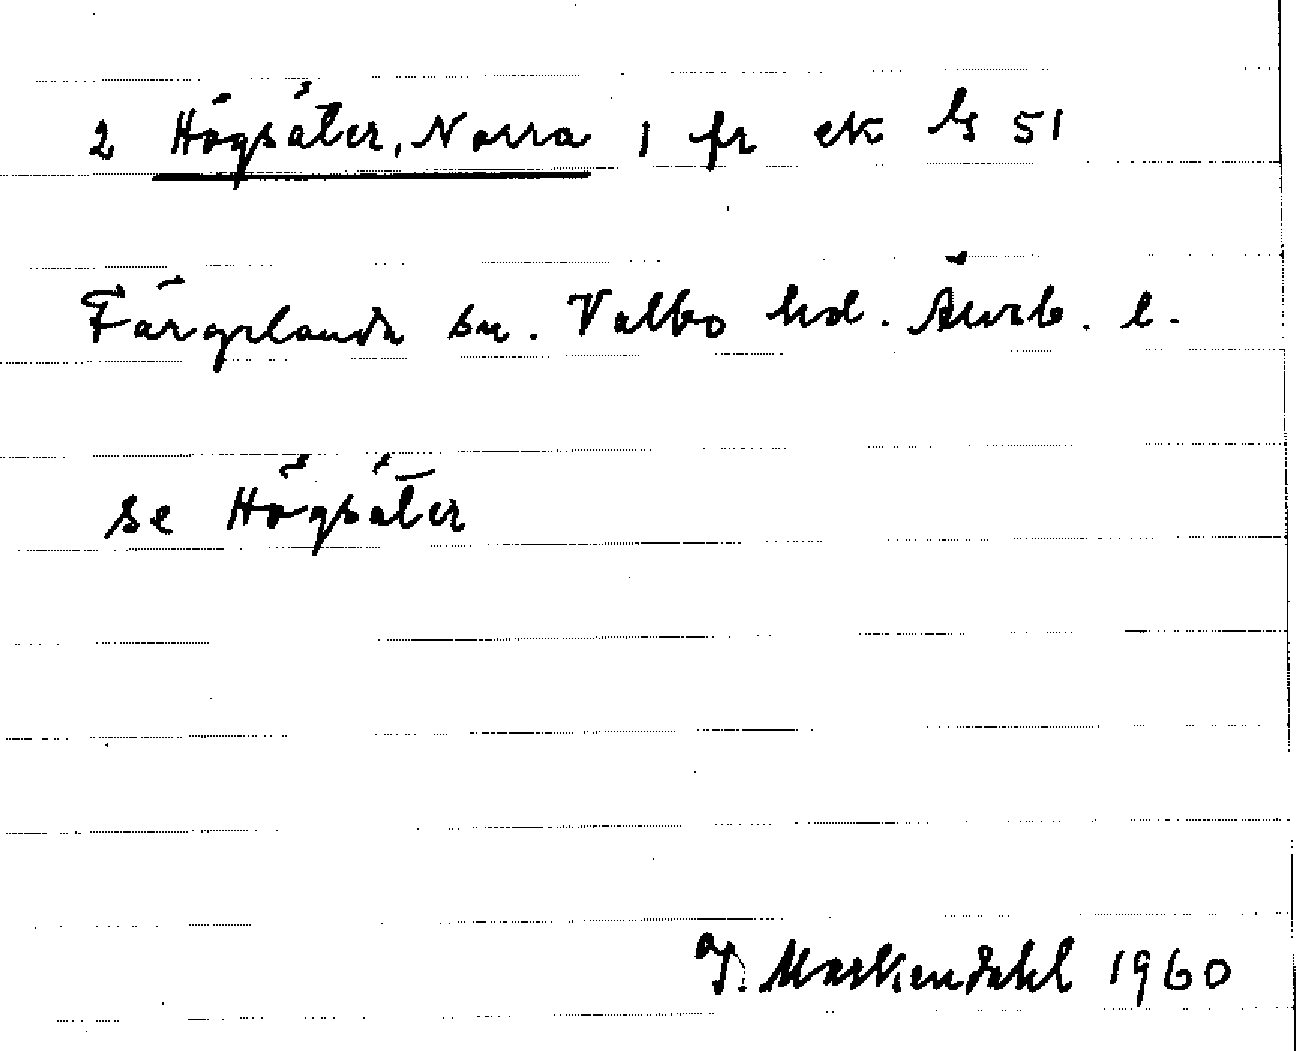 2 Högsäter, Norra 1 fr ek ls 51
Färgelanda sn. Valbo hd. Älvsb. l.
se Högsäter
J. Markendahl 1960